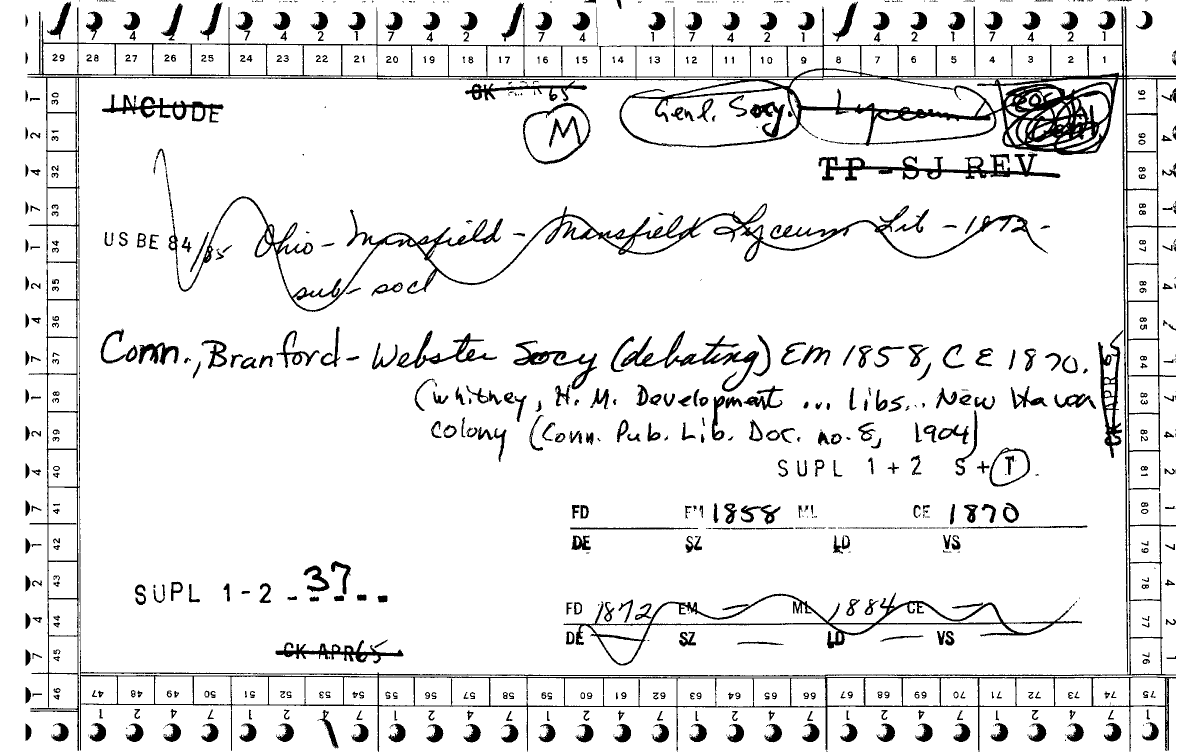 7 4 2 1 7 4 2 1 7 4 2 1 7 4 2 1 7 4 2 1 7 4 2 1 7 4 2 1
29 28 27 26 25 24 23 22 21 20 19 18 17 16 15 14 13 12 11 10 9 8 7 6 5 4 3 2 1
INCLUDE
CK APR 65
M
Genl. Socy. Lyceum
TP - SJ REV
US BE 84/85 Ohio - Mansfield - Mansfield Lyceum Lib - 1872 -
sub-socl
Conn., Branford - Webster Socy (debating) EM 1858, CE 1870.
(Whitney, H. M. Development ... libs... New Haven
colony (Conn. Pub. Lib. Doc. no. 8, 1904)
SUPL 1 + 2 S + T.
FD EM 1858 ML CE 1870
DE SZ LD VS
SUPL 1 - 2 - 37 - -
FD 1872 EM — ML 1884 CE —
DE — SZ — LD — VS —
CK APR 65
CK APR 65
30 31 32 33 34 35 36 37 38 39 40 41 42 43 44 45 46
91 90 89 88 87 86 85 84 83 82 81 80 79 78 77 76
47 48 49 50 51 52 53 54 55 56 57 58 59 60 61 62 63 64 65 66 67 68 69 70 71 72 73 74 75